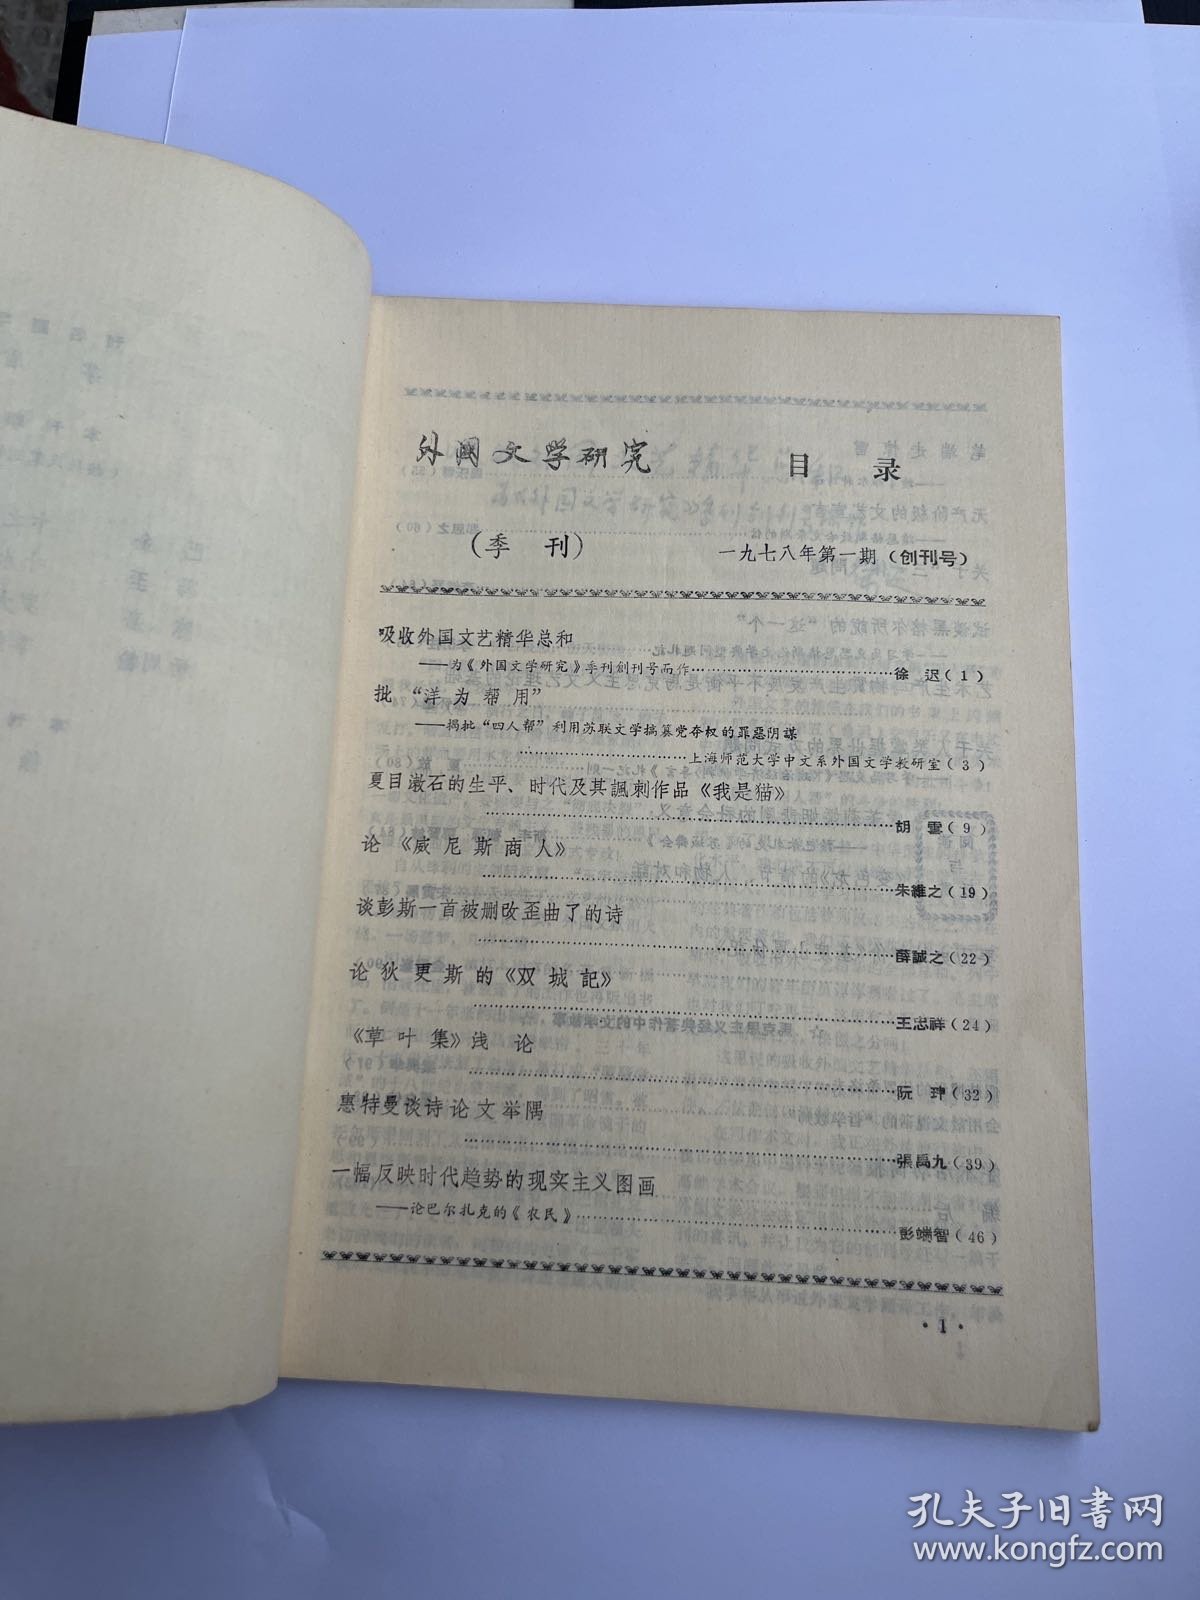 外国文学研究
目录
（季 刊）
一九七八年第一期（创刊号）
吸收外国文艺精华总和
——为《外国文学研究》季刊創刊号而作……………………………徐 迟（1）
批 “洋 为 帮 用”
——揭批“四人帮”利用苏联文学搞篡党夺权的罪恶阴謀
……………………上海师范大学中文系外国文学教研室（3）
夏目漱石的生平、时代及其諷刺作品《我是猫》
……………………………………………………………胡 雲（9）
论《威 尼 斯 商 人》
……………………………………………………………朱維之（19）
谈彭斯一首被删改歪曲了的诗
……………………………………………………………薛誠之（22）
论 狄 更 斯 的《双 城 記》
……………………………………………………………王忠祥（24）
《草 叶 集》浅 论
……………………………………………………………阮 珅（32）
惠特曼谈诗论文举隅
……………………………………………………………張禹九（39）
一幅反映时代趋势的现实主义图画
——论巴尔扎克的《农民》……………………………………彭端智（46）
·1·
孔夫子旧书网
www.kongfz.com